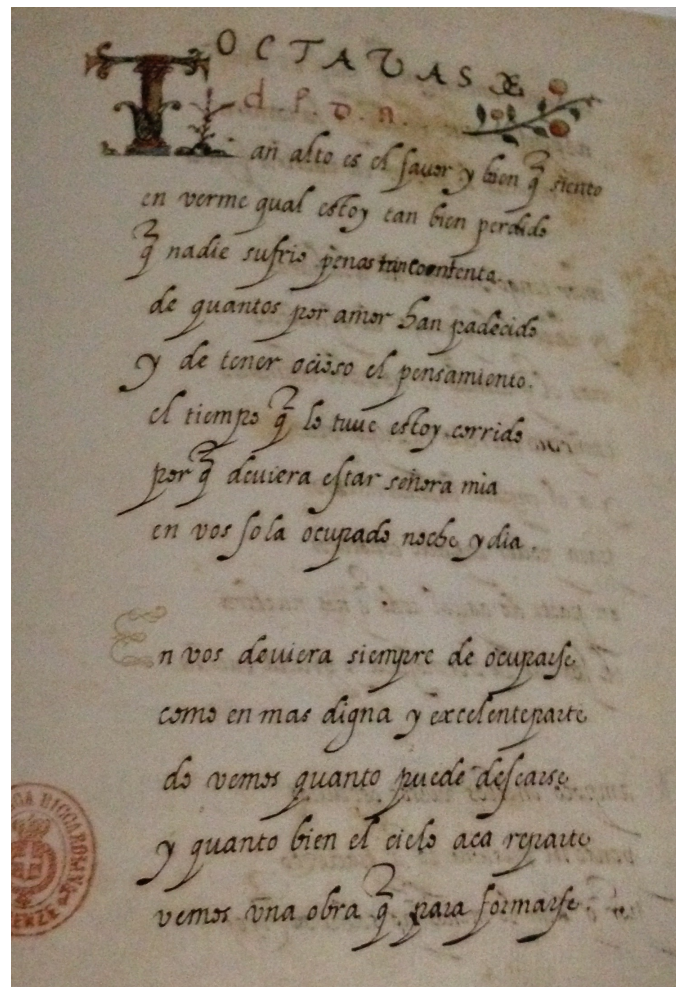 OCTAVAS DE
d. P. D. n.
Tan alto es el fauor y bien q̃ siento
en verme qual estoy tan bien perdido
q̃ nadie sufrio penas tan contento
de quantos por amor han padecido
y de tener ocioso el pensamiento.
el tiempo q̃ lo tuue estoy corrido
por q̃ deuiera estar señora mia
en vos sola ocupado noche y dia.
En vos deuiera siempre de ocuparse
como en mas digna y excelente parte
do vemos quanto puede desearse
y quanto bien el cielo aca reparte
vemos vna obra q̃ para formarse.
RICCARDIANA
FIRENZE